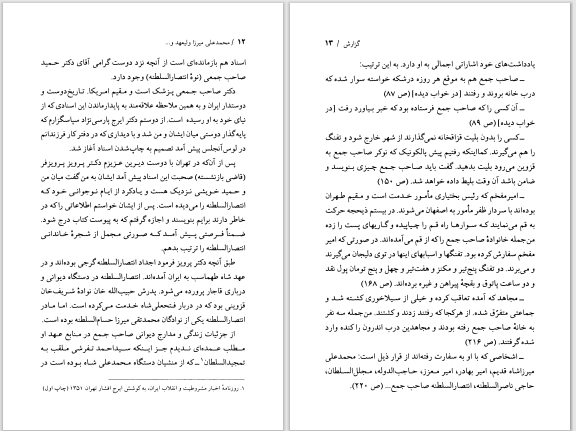 ۱۲ / محمدعلی میرزا ولیعهد و...
اسناد هم بازمانده‌ای است از آنچه نزد دوست گرامی آقای دکتر حمید
صاحب جمعی (نوهٔ انتصارالسلطنه) وجود دارد.
دکتر صاحب جمعی پزشک است و مقیم امریکا. تاریخ‌دوست و
دوستدار ایران و به همین ملاحظه علاقه‌مند به پایدارماندن این اسنادی که از
نیای خود به او رسیده است. از دوستم دکتر ایرج پارسی‌نژاد سپاسگزارم که
پایه‌گذار دوستی میان ایشان و من شد و با دیداری‌که در دفتر کار فرزندانم
در لوس‌آنجلس پیش آمد تصمیم به چاپ‌شدن اسناد آغاز شد.
پس از آن‌که در تهران با دوست دیرین عزیزم دکتر پرویز پرویزفر
(قاضی بازنشسته) صحبت این اسناد پیش آمد ایشان به من گفت میان من
و حمید خویشی نزدیک هست و یادکرد از ایام نوجوانی خود که
انتصارالسلطنه را می‌دیده است. پس از ایشان خواستم اطلاعاتی را که در
خاطر دارند برایم بنویسند و اجازه گرفتم که به پیوست کتاب درج شود.
ضمناً فرصتی پیش آمد که صورتی مجمل از شجرهٔ خاندانی
انتصارالسلطنه را ترتیب بدهم.
طبق آنچه دکتر پرویز فرمود اجداد انتصارالسلطنه گرجی بوده‌اند و در
عهد شاه طهماسب به ایران آمده‌اند. انتصارالسلطنه در دستگاه دیوانی و
درباری قاجار پرورده می‌شود. پدرش حبیب‌الله خان نوادهٔ شریف‌خان
قزوینی بود که در دربار فتحعلی‌شاه خدمت می‌کرده است. اما مادر
انتصارالسلطنه یکی از نوادگان محمدتقی میرزا حسام‌السلطنه بوده است.
از جزئیات زندگی و مدارج دیوانی صاحب جمع در منابع عهد او
مطلب عمده‌ای ندیدم جز اینکه سیداحمد تفرشی ملقب به
تمجیدالسلطان۱ ـ که از منشیان دستگاه محمدعلی شاه بوده است در
۱. روزنامهٔ اخبار مشروطیت و انقلاب ایران، به کوشش ایرج افشار تهران ۱۳۵۱ (چاپ اول)
گزارش / ۱۳
یادداشت‌های خود اشاراتی اجمالی به او دارد. به این ترتیب:
ـ صاحب جمع هم به موقع هر روزه درشکه خواسته سوار شده که
درب خانه بروند و رفتند [در خواب دیده] (ص ۸۷)
ـ آن کسی را که صاحب جمع فرستاده بود که خبر بیاورد رفت [در
خواب دیده] (ص ۸۹)
ـ کسی را بدون بلیت قزاقخانه نمی‌گذارند از شهر خارج شود و تفنگ
را هم می‌گیرند. کمااینکه رفتیم پیش پالکونیک که نوکر صاحب جمع به
قزوین می‌رود بلیت بدهید. گفت باید صاحب جمع چیزی بنویسد و
ضامن باشد آن وقت بلیط داده خواهد شد. (ص ۱۵۰)
ـ امیرمفخم که رئیس بختیاری مأمور خدمت است و مقیم طهران
بوده‌اند با سردار ظفر مأمور به اصفهان می‌شوند. در بیستم ذیحجه حرکت
به قم می‌نمایند که سوارها راه قم را چاپیده و گاریهای پست را زده
من‌جمله خانوادهٔ صاحب جمع را که از قم می‌آمده‌اند. در صورتی که امیر
مفخم سفارش کرده بود. تفنگها و اسبابهای اینها در توی دلیجان می‌گیرند
و می‌برند. دو تفنگ پنج‌تیر و مکنز و هفت‌تیر و چهل و پنج تومان پول نقد
و دو ساعت پاتوق و بقچهٔ پیراهن و غیره برده‌اند. (ص ۱۶۸)
ـ مجاهد که آمده تعاقب کرده و خیلی از سیلاخوری کشته شد و
جماعتی متفرّق شده. از هرکجا که رفتند زدند و کشتند. من‌جمله سه نفر
به خانهٔ صاحب جمع رفته بودند و مجاهدین درب اندرون را کنده وارد
شده گرفتند. (ص ۲۱۶)
ـ اشخاصی که با او به سفارت رفته‌اند از قرار ذیل است: محمدعلی
میرزاشاه قدیم، امیر بهادر، امیر معزز، حاجب‌الدوله، مجلل‌السلطان،
حاجی ناصرالسلطنه، انتصارالسلطنه صاحب جمع... (ص ۲۲۰).